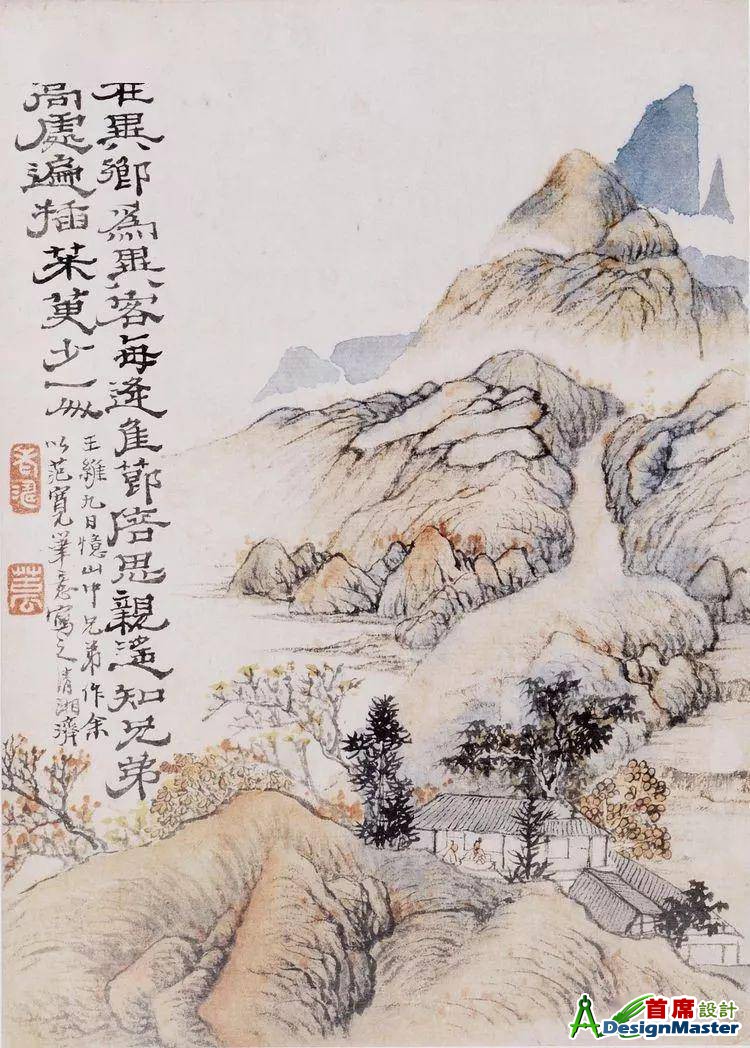 在異鄉爲異客每逢佳節倍思親遙知兄弟
高處遍插茱萸少一人
王維九日憶山中兄弟作余
以范寬筆意寫之清湘濟
首席設計
DesignMaster